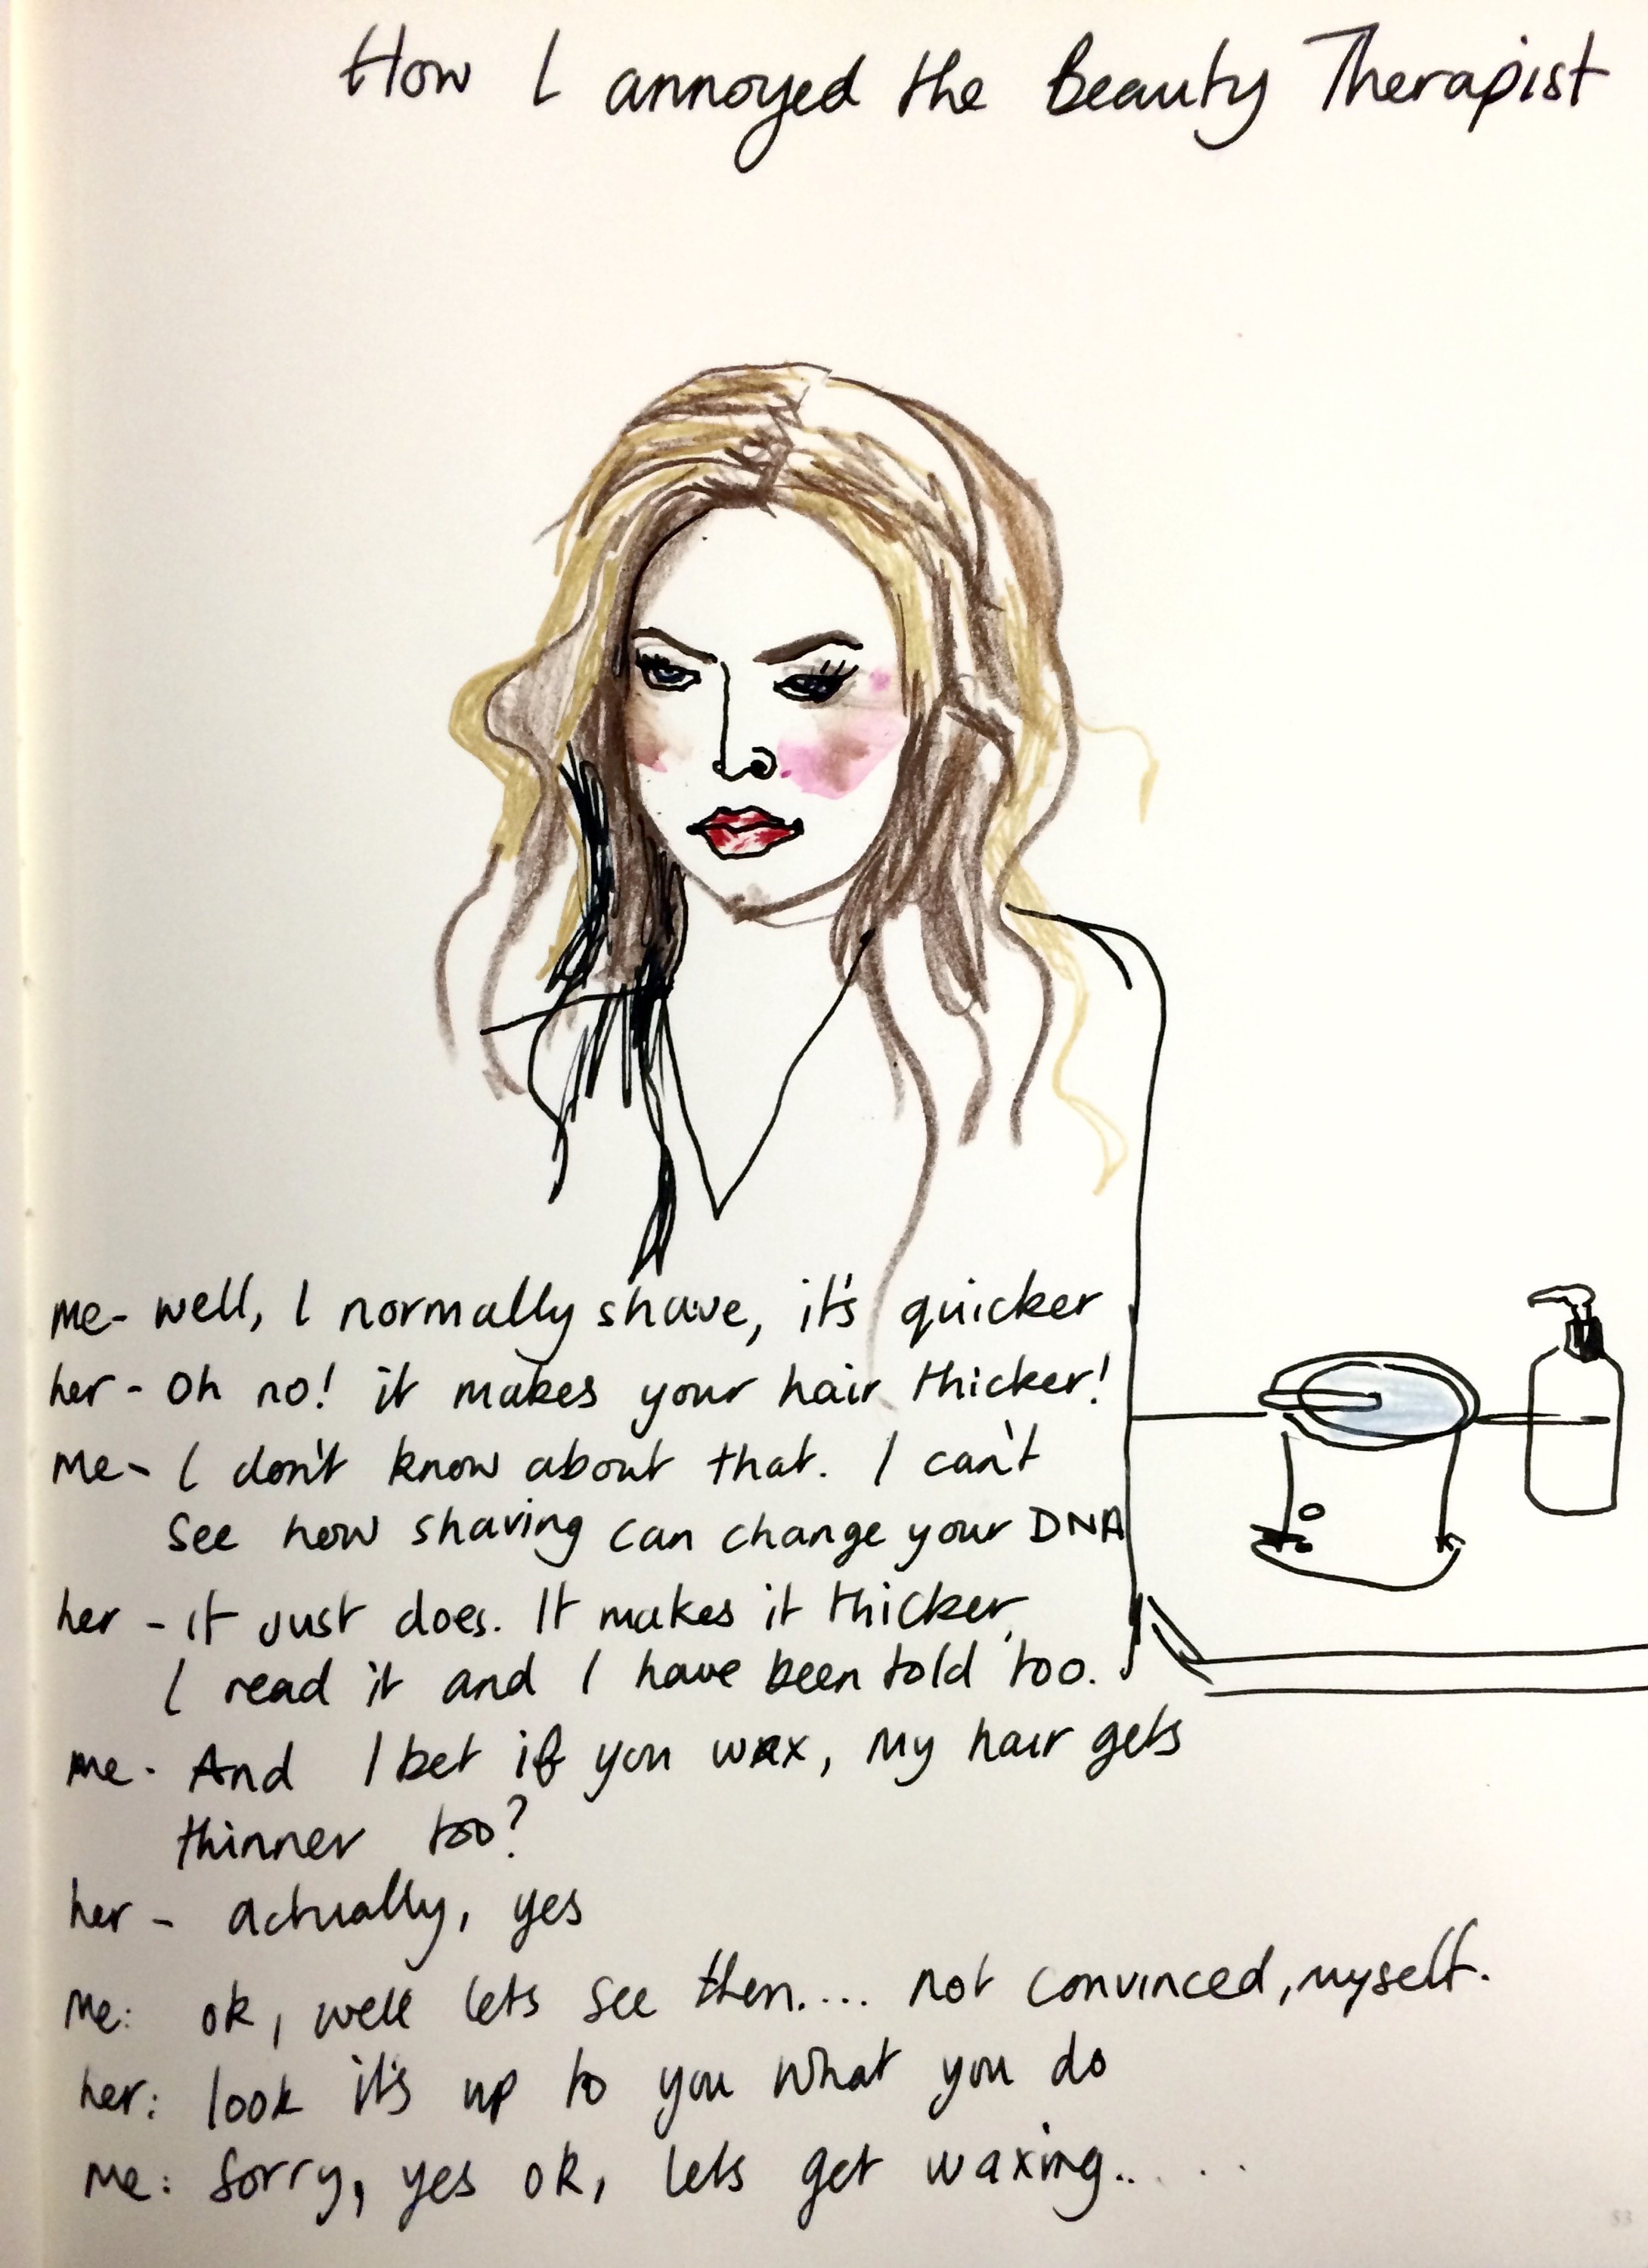 How I annoyed the Beauty Therapist
me- well, I normally shave, it's quicker
her- Oh no! it makes your hair thicker!
me- I don't know about that. I can't
see how shaving can change your DNA
her - it just does. It makes it thicker,
I read it and I have been told too.
me- And I bet if you wax, my hair gets
thinner too?
her - actually, yes
me: ok, well lets see then.... not convinced, myself.
her: look it's up to you what you do
me: Sorry, yes ok, lets get waxing.. . . .
53